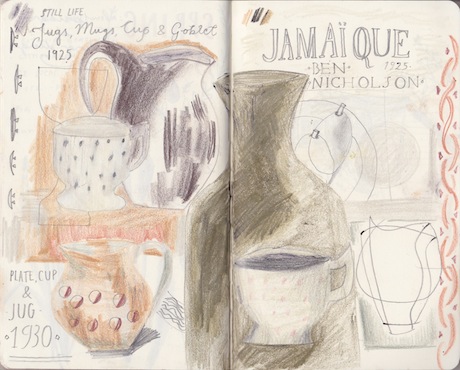 STILL LIFE
Jugs, Mugs, Cup & Goblet
1925
PLATE, CUP
&
JUG.
·1930·
JAMAÏQUE
1925.
·BEN·
NICHOLSON·